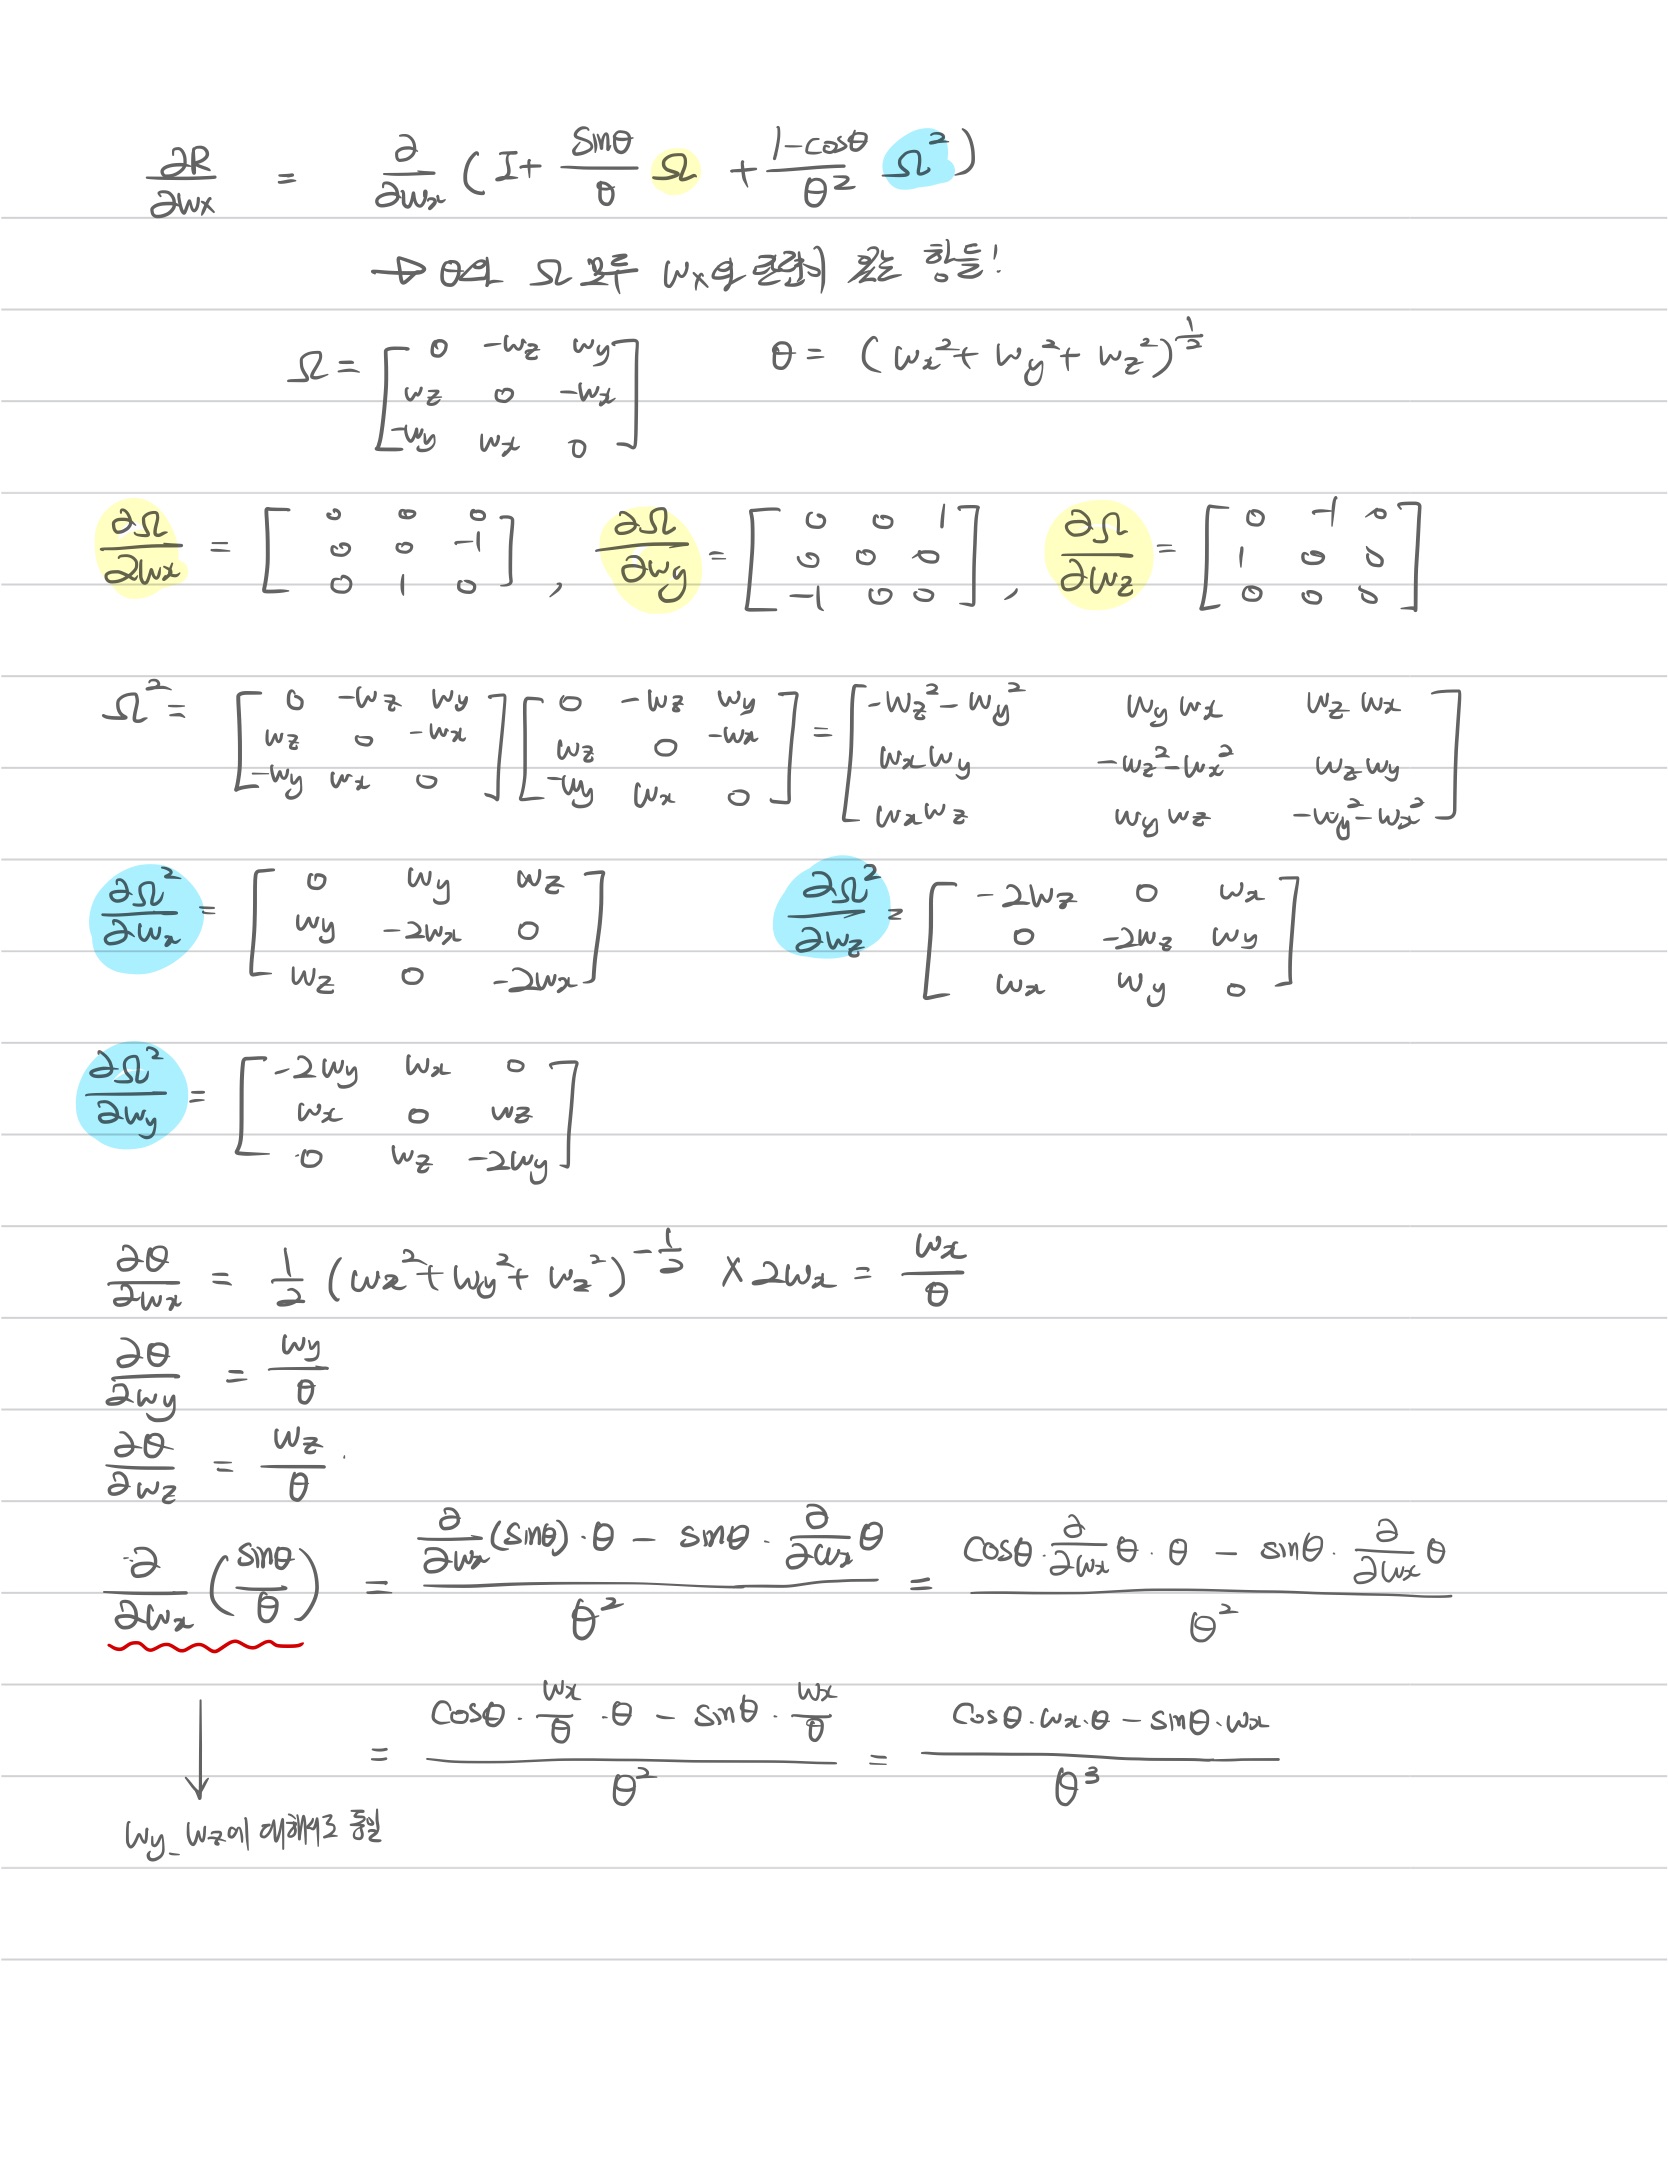 ∂R/∂wx = ∂/∂wx (I + sinθ/θ Ω + (1-cosθ)/θ² Ω²)
→ θ와 Ω 모두 wx와 관련이 있는 항들!
Ω = [0 -wz wy; wz 0 -wx; -wy wx 0]   θ = (wx² + wy² + wz²)^(1/2)
∂Ω/∂wx = [0 0 0; 0 0 -1; 0 1 0], ∂Ω/∂wy = [0 0 1; 0 0 0; -1 0 0], ∂Ω/∂wz = [0 -1 0; 1 0 0; 0 0 0]
Ω² = [0 -wz wy; wz 0 -wx; -wy wx 0][0 -wz wy; wz 0 -wx; -wy wx 0] = [-wz²-wy² wywx wzwx; wxwy -wz²-wx² wzwy; wxwz wywz -wy²-wx²]
∂Ω²/∂wx = [0 wy wz; wy -2wx 0; wz 0 -2wx]   ∂Ω²/∂wz = [-2wz 0 wx; 0 -2wz wy; wx wy 0]
∂Ω²/∂wy = [-2wy wx 0; wx 0 wz; 0 wz -2wy]
∂θ/∂wx = 1/2 (wx² + wy² + wz²)^(-1/2) × 2wx = wx/θ
∂θ/∂wy = wy/θ
∂θ/∂wz = wz/θ
∂/∂wx (sinθ/θ) = (∂/∂wx (sinθ)·θ - sinθ·∂/∂wx θ)/θ² = (cosθ·∂/∂wx θ·θ - sinθ·∂/∂wx θ)/θ²
↓ = (cosθ·wx/θ·θ - sinθ·wx/θ)/θ² = (cosθ·wx·θ - sinθ·wx)/θ³
wy, wz에 대해서도 동일